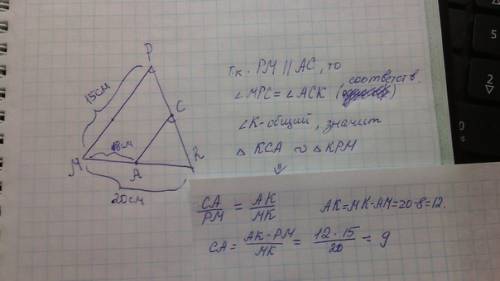 P
15см
C
8см
M
A
K
20см
Т.к. PM || AC, то
соответств.
∠MPC = ∠ACK (
∠K-общий, значит
△ KCA ∾ △ KPM
⇓
CA/PM = AK/MK AK=MK-AM=20-8=12.
CA = AK·PM/MK = 12·15/20 = 9